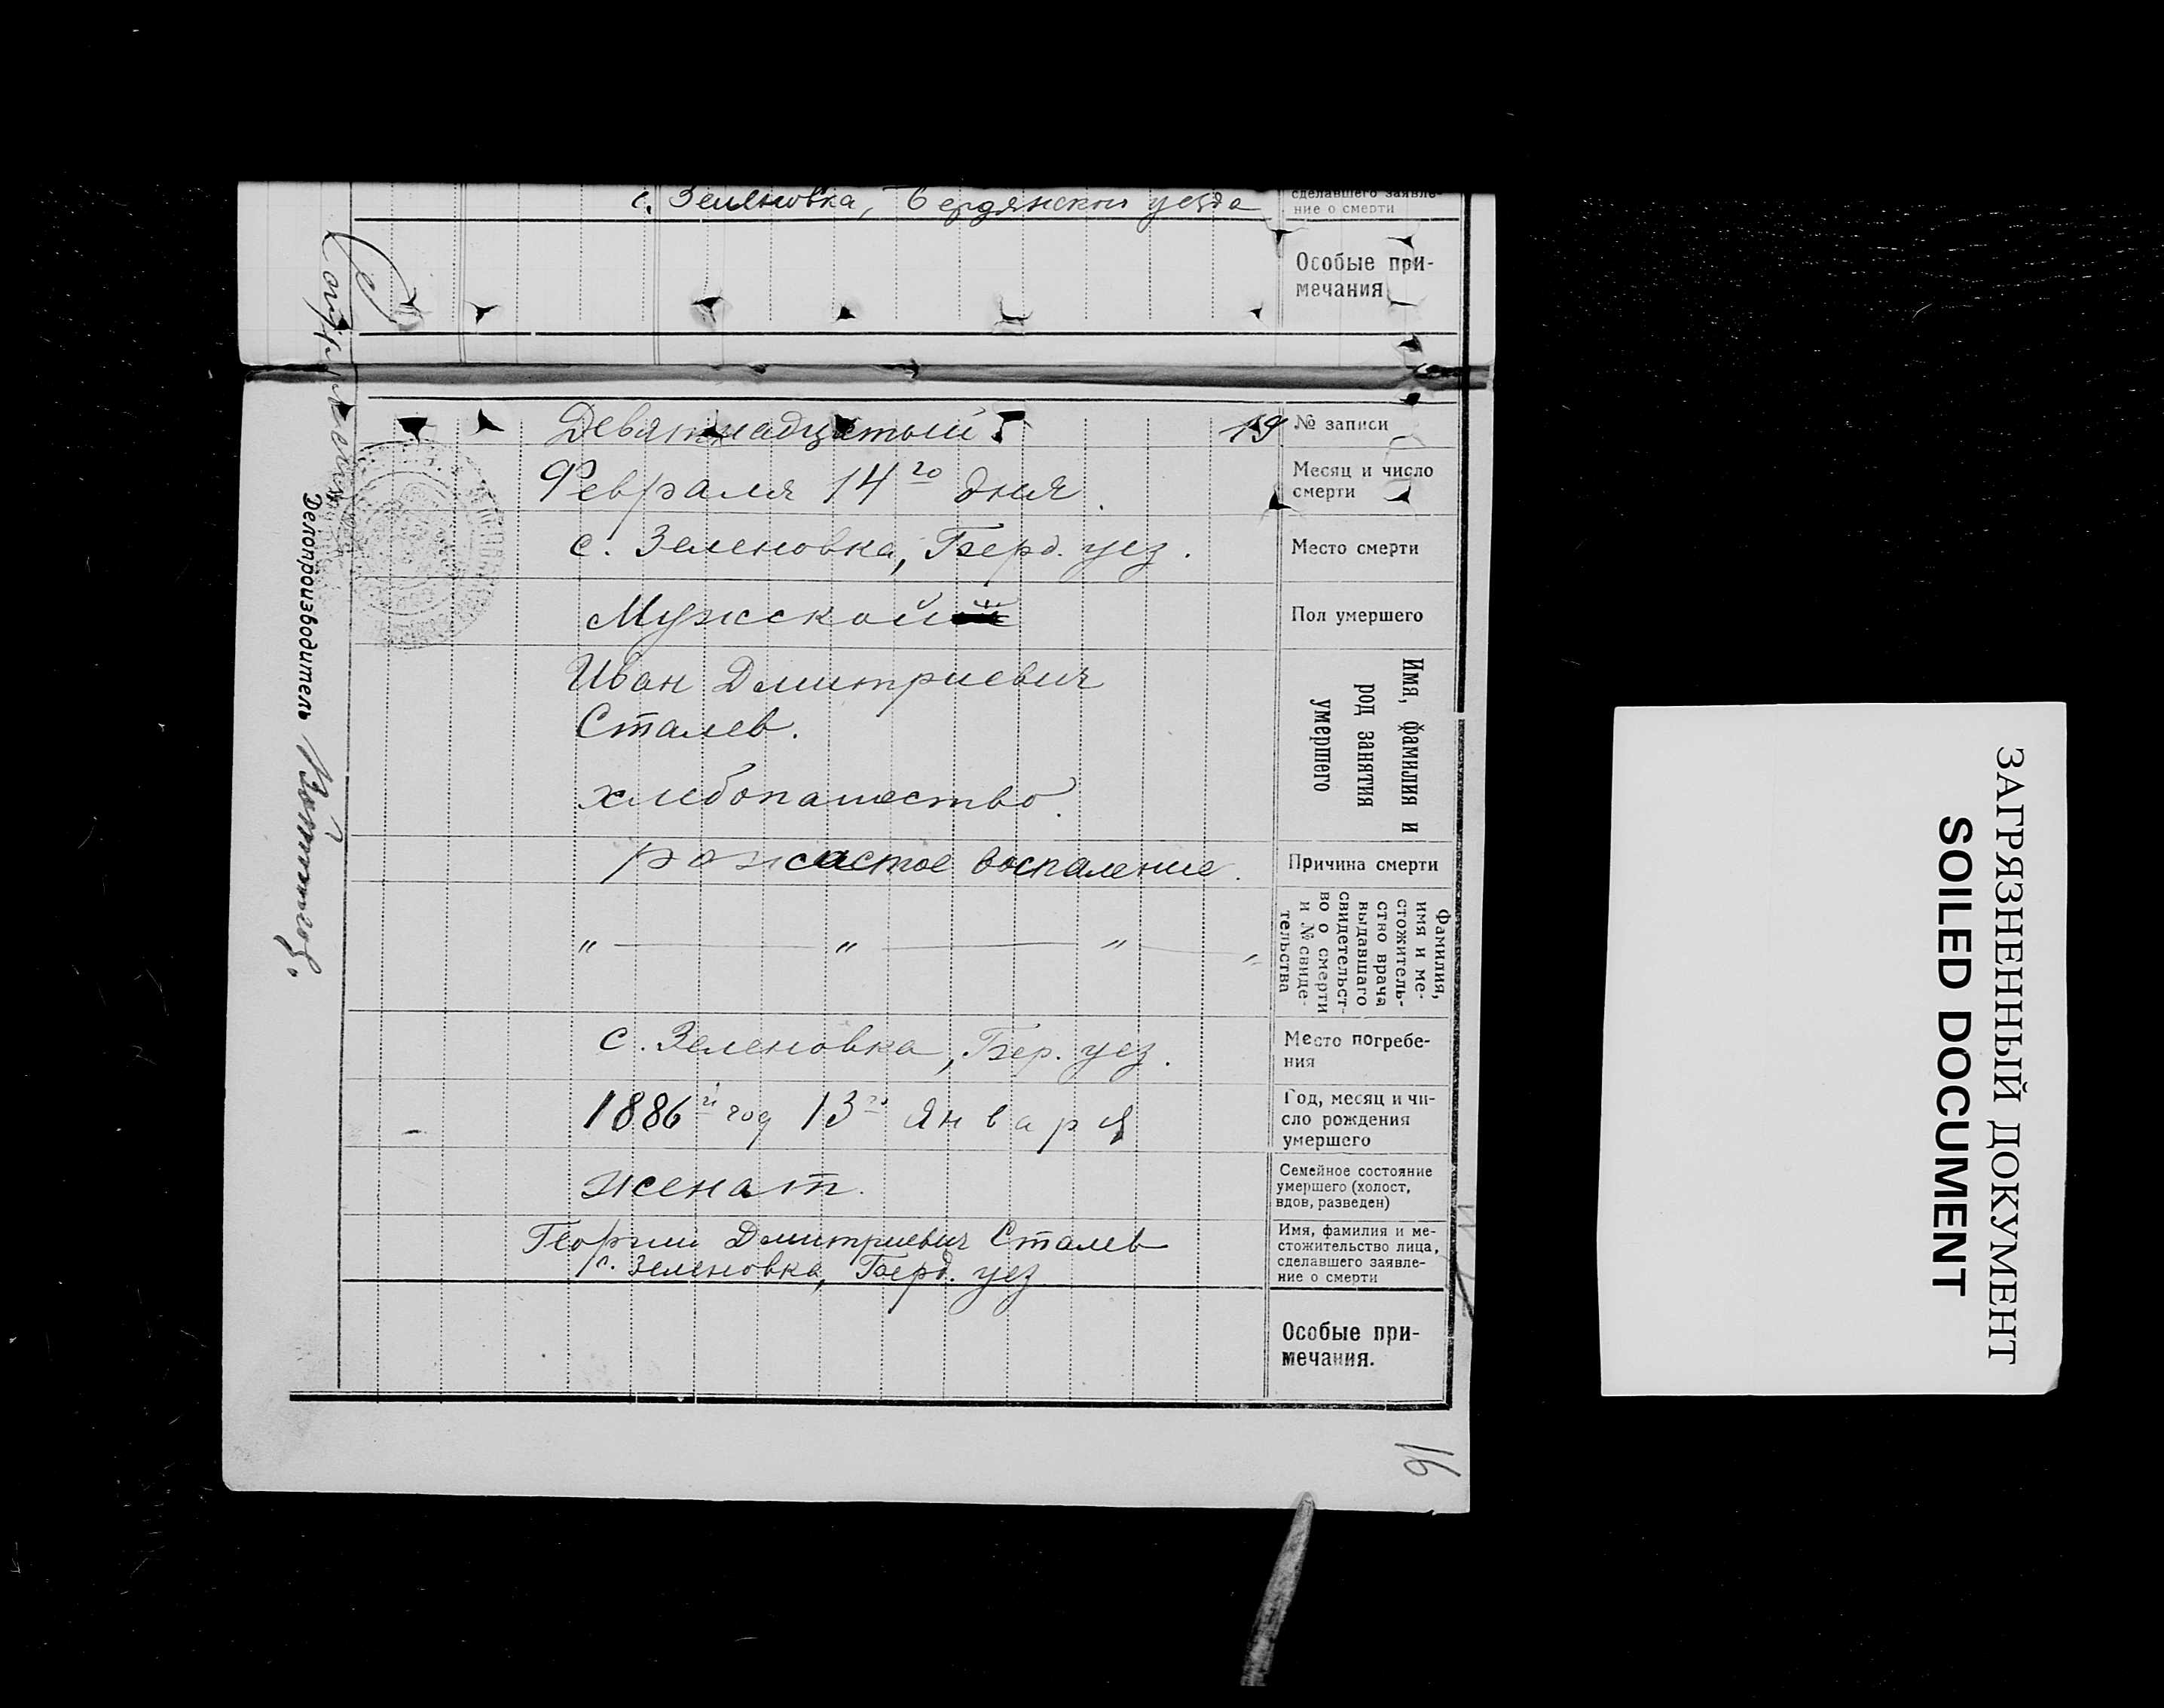 с. Зеленовка, Бердянскаго уезда
сделавшего заявле-
ние о смерти
Особые при-
мечания
Девятнадцатый
19
№ записи
Февраля 14го дня.
Месяц и число
смерти
с. Зеленовка, Берд. уез.
Место смерти
Мужской
Пол умершего
Иван Дмитриевич
Сталев.
хлебопашество.
Имя, фамилия и
род занятия
умершего
рожистое воспаление.
Причина смерти
" — " — " — "
Фамилия,
имя и ме-
стожитель-
ство врача
выдавшаго
свидетельст-
во о смерти
и № свиде-
тельства
с. Зеленовка, Бер. уез.
Место погребе-
ния
1886й год 13го Января
Год, месяц и чи-
сло рождения
умершего
женат.
Семейное состояние
умершего (холост,
вдов, разведен)
Георгий Дмитриевич Сталев
с. Зеленовка, Берд. уез
Имя, фамилия и ме-
стожительство лица,
сделавшего заявле-
ние о смерти
Особые при-
мечания.
Делопроизводитель
91
ЗАГРЯЗНЕННЫЙ ДОКУМЕНТ
SOILED DOCUMENT